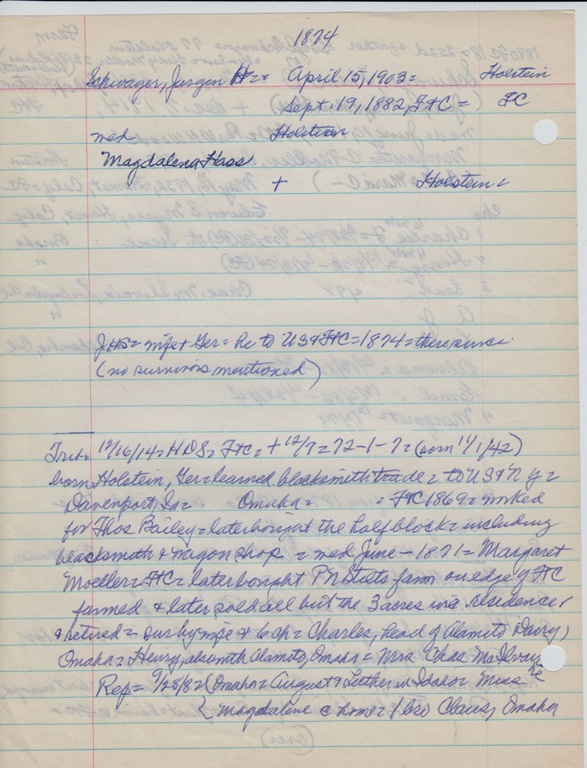 1874
Schwager, Jurgen H= April 15, 1903= Holstein
Sept. 19, 1882, FtC = FC
med Holstein
Magdalena Hass
+ Holstein=
JHS= wife + Ger= he to US + FtC=1874= there since
(no survivors mentioned)
Trib= 12/16/14= HDS= FtC= + 12/7= 72-1-7= (born 11/1/42)
born Holstein, Ger= learned blacksmith trade= to US + N Y=
Davenport, Ia= Omaha= = FtC 1869= worked
for Thos Bailey= later bought the half block= including
blacksmith & wagon shop = med June - 1871= Margaret
Moeller= FtC= later bought P N Stists farm on edge of FtC
farmed & later sold all but the 3 acres inc residence,
& retired= sur by wife & 6 ch= Charles, head of Alamito Dairy,
Omaha= Henry, also with Alamito, Omaha= Mrs Chas
Rep= 7/28/82 (Omaha= August & Luther in Idaho= Miss
Magdalene @ home= 1 bro Claus, Omaha
(over)